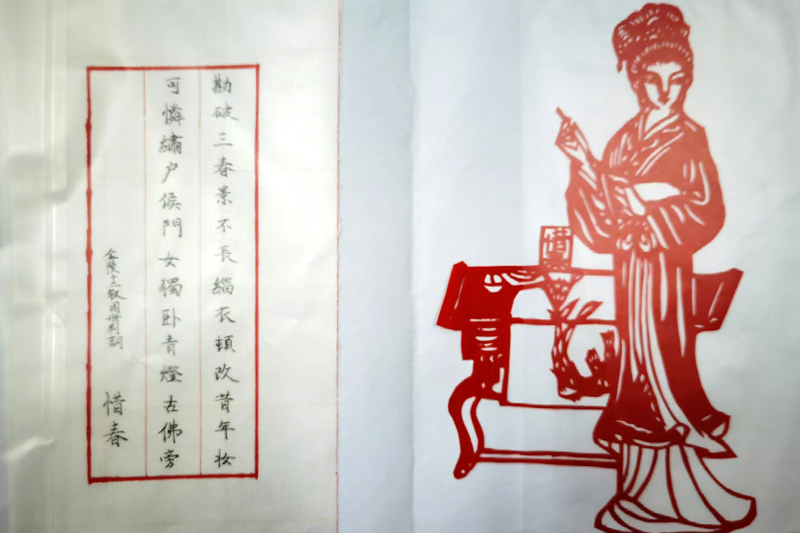 勘破三春景不長緇衣頓改昔年妝
可憐繡户侯門女獨卧青燈古佛旁
金陵十二釵圖册判詞
惜春
惜春